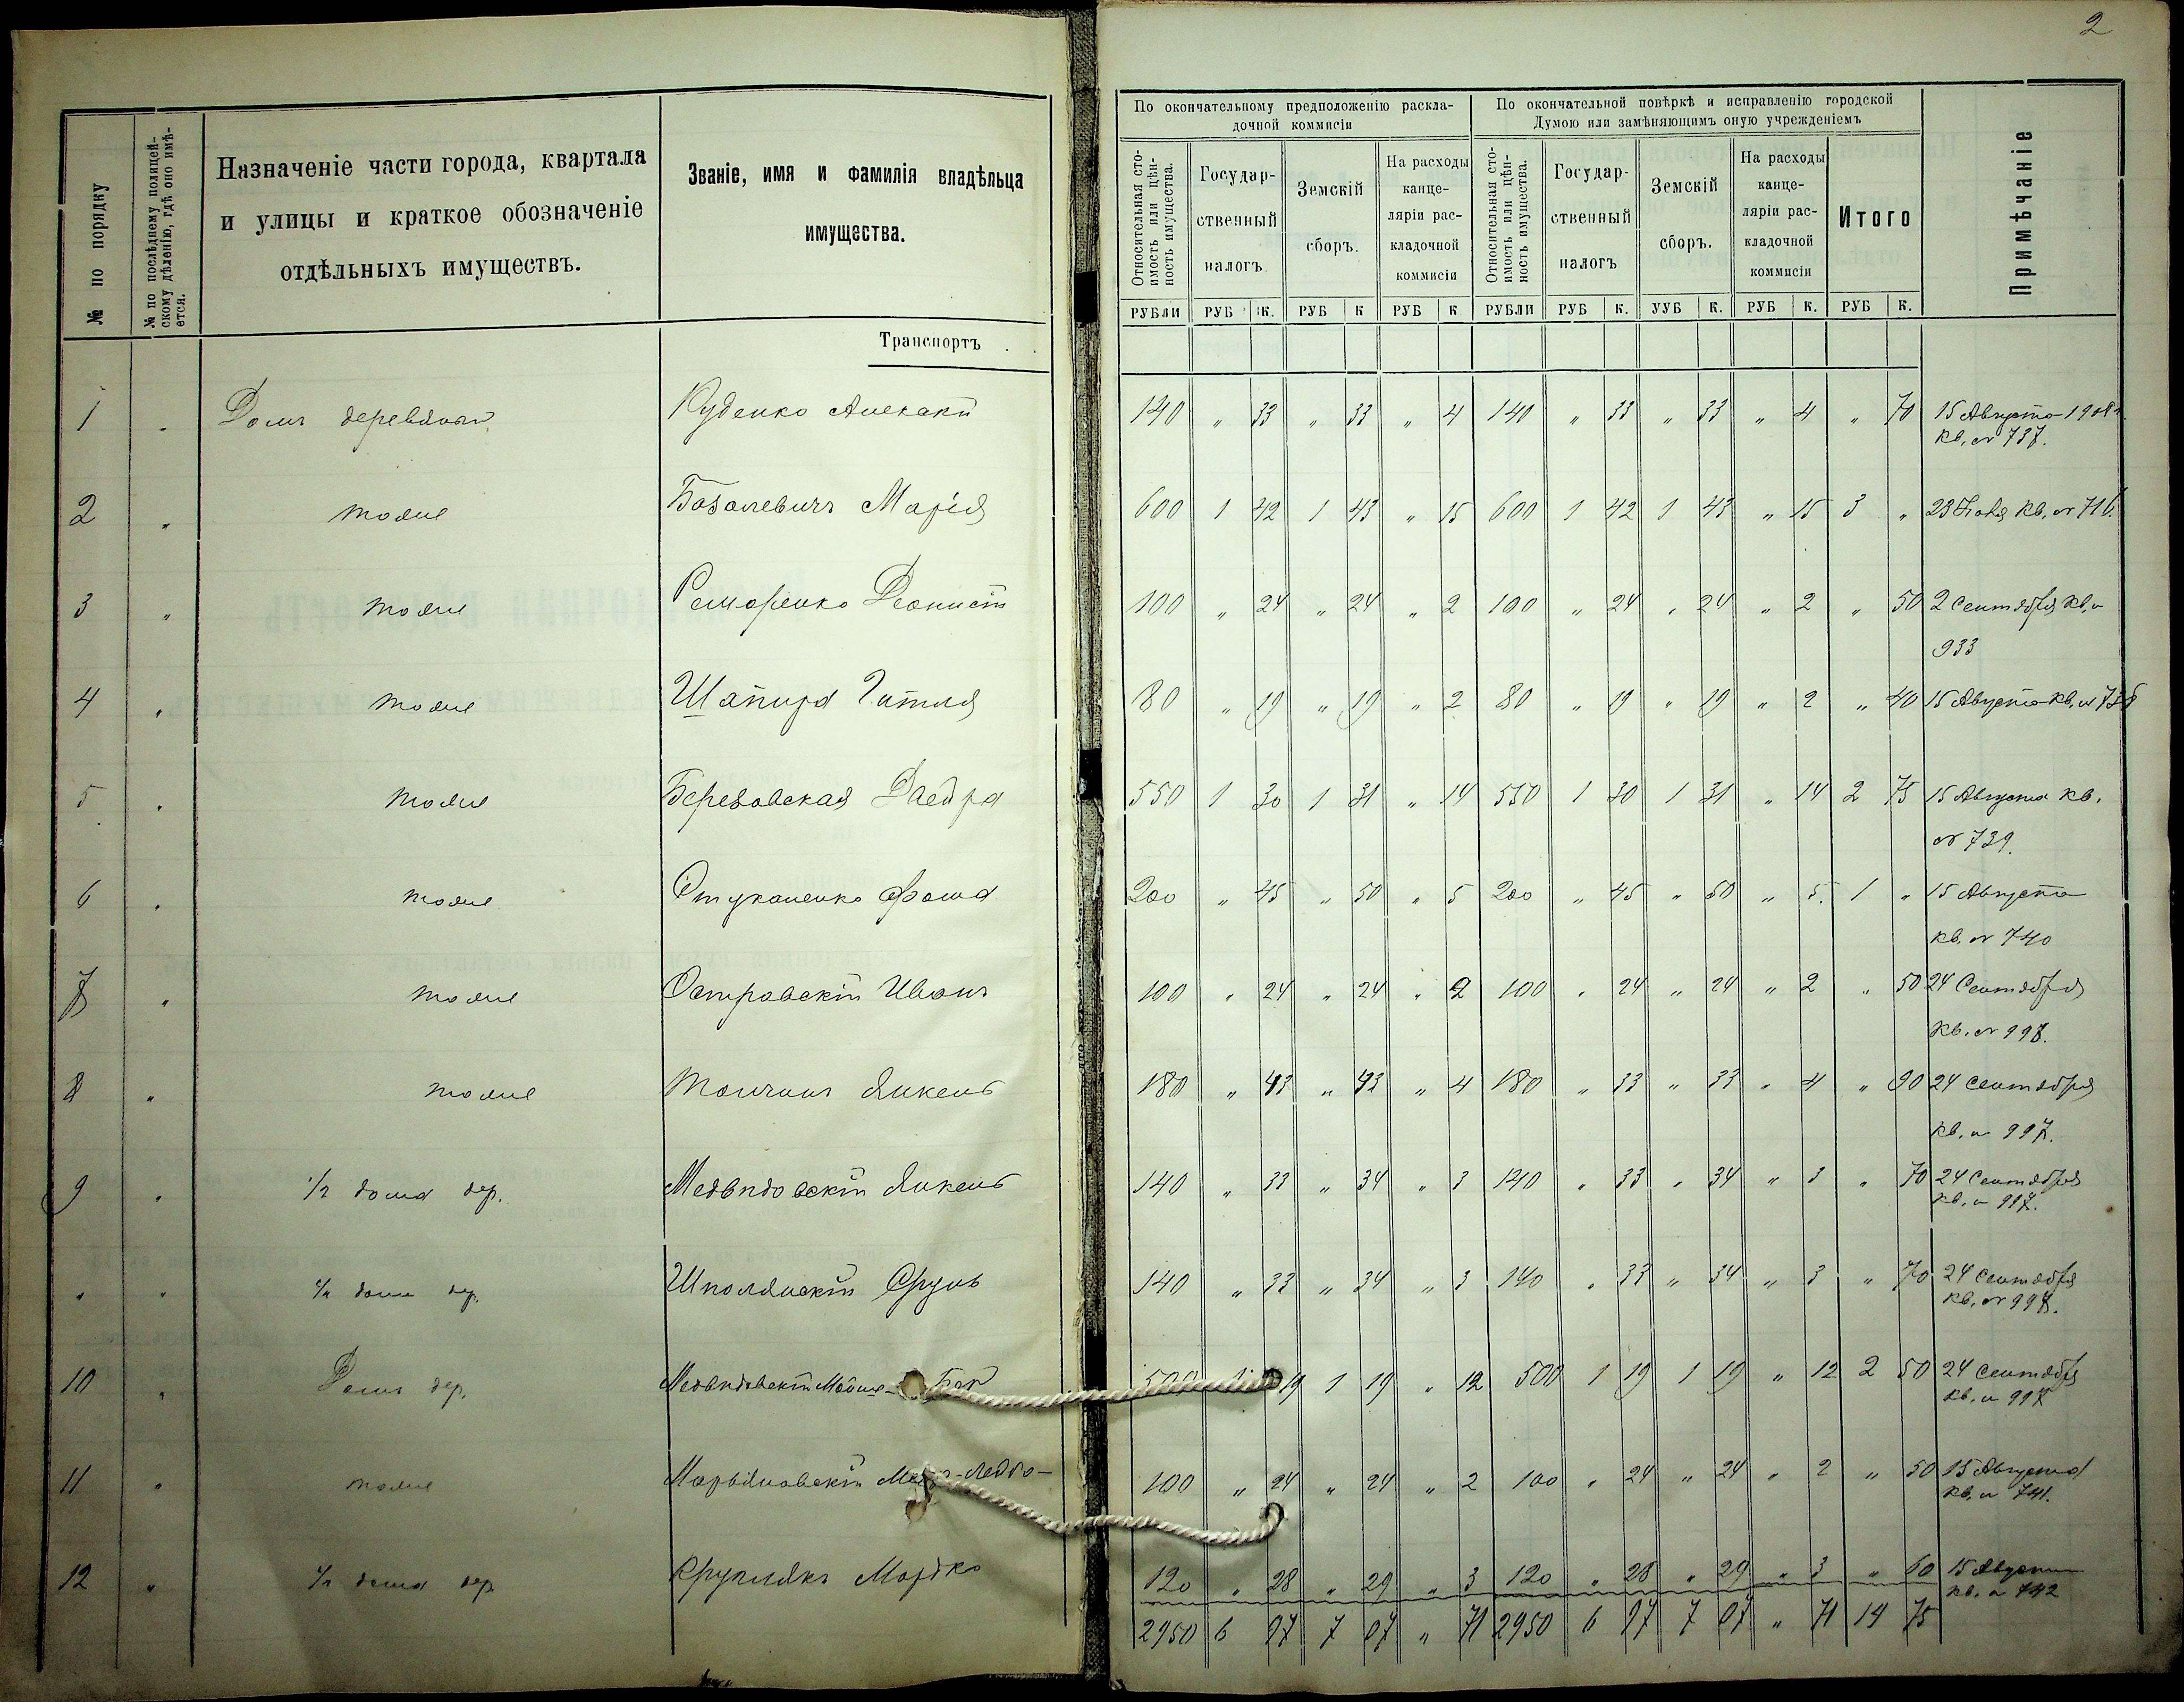 2
№ по порядку
№ по послѣднему полицей-
скому дѣленію, гдѣ оно имѣ-
ется.
Назначеніе части города, квартала
и улицы и краткое обозначеніе
отдѣльныхъ имуществъ.
Званіе, имя и фамилія владѣльца
имущества.
По окончательному предположенію раскла-
дочной коммисіи
По окончательной повѣркѣ и исправленію городской
Думою или замѣняющимъ оную учрежденіемъ
Относительная сто-
имость или цѣн-
ность имущества.
Государ-
ственный
налогъ
Земскій
сборъ.
На расходы
канце-
ляріи рас-
кладочной
коммисіи
Относительная сто-
имость или цѣн-
ность имущества.
Государ-
ственный
налогъ
Земскій
сборъ.
На расходы
канце-
ляріи рас-
кладочной
коммисіи
Итого
Примѣчаніе
РУБЛИ РУБ К. РУБ К РУБ К РУБЛИ РУБ К. УУБ К. РУБ К. РУБ К.
Транспортъ
1 " Домъ деревяный 140 " 33 " 33 " 4 140 " 33 " 33 " 4 " 70 15 Августа 1908 г.
кв. № 737.
2 " тоже Марія 600 1 42 1 43 " 15 600 1 42 1 43 " 15 3 " 23 кв. № 716.
3 " тоже 100 " 24 " 24 " 2 100 " 24 " 24 " 2 " 50 2 Сентября кв. №
933
4 " тоже Шапира Гитля 80 " 19 " 19 " 2 80 " 19 " 19 " 2 " 40 15 Августа кв. № 738
5 " тоже Березовская 550 1 30 1 31 " 14 550 1 30 1 31 " 14 2 75 15 Августа кв.
№ 739.
6 " тоже Фома 200 " 45 " 50 " 5 200 " 45 " 50 " 5 1 " 15 Августа
кв. № 740
7 " тоже Островскій Иванъ 100 " 24 " 24 " 2 100 " 24 " 24 " 2 " 50 24 Сентября
кв. № 998.
8 " тоже Янкель 180 " 43 " 43 " 4 180 " 33 " 33 " 4 " 90 24 Сентября
кв. № 997.
9 " 1/2 дома дер. Медвѣдовскій Янкель 140 " 33 " 34 " 3 140 " 33 " 34 " 3 " 70 24 Сентября
кв. № 997.
" " 1/2 дома дер. Шполянскій Срулъ 140 " 33 " 34 " 3 140 " 33 " 34 " 3 " 70 24 Сентября
кв. № 998.
10 " Домъ дер. Медвѣдовскій Бер 500 1 19 1 19 " 12 500 1 19 1 19 " 12 2 50 24 Сентября
кв. № 997
11 " тоже Марьяновскій 100 " 24 " 24 " 2 100 " 24 " 24 " 2 " 50 15 Августа
кв. № 741.
12 " 1/2 дома дер. Круглякъ Мордко 120 " 28 " 29 " 3 120 " 28 " 29 " 3 " 60 15 Августа
кв. № 742
2950 6 97 7 07 " 71 2950 6 97 7 07 " 71 14 75